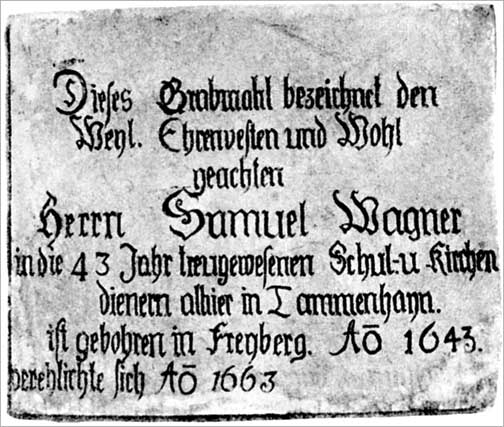 Dieses Grabmahl bezeichnet den
Weyl. Ehrenvesten und Wohl
geachten
Herrn Samuel Wagner
in die 43 Jahr treugewesenen Schul-u Kirchen
dienern alhier in Tammenhayn.
ist gebohren in Freyberg. Aō 1643.
verehlichte sich Aō 1663